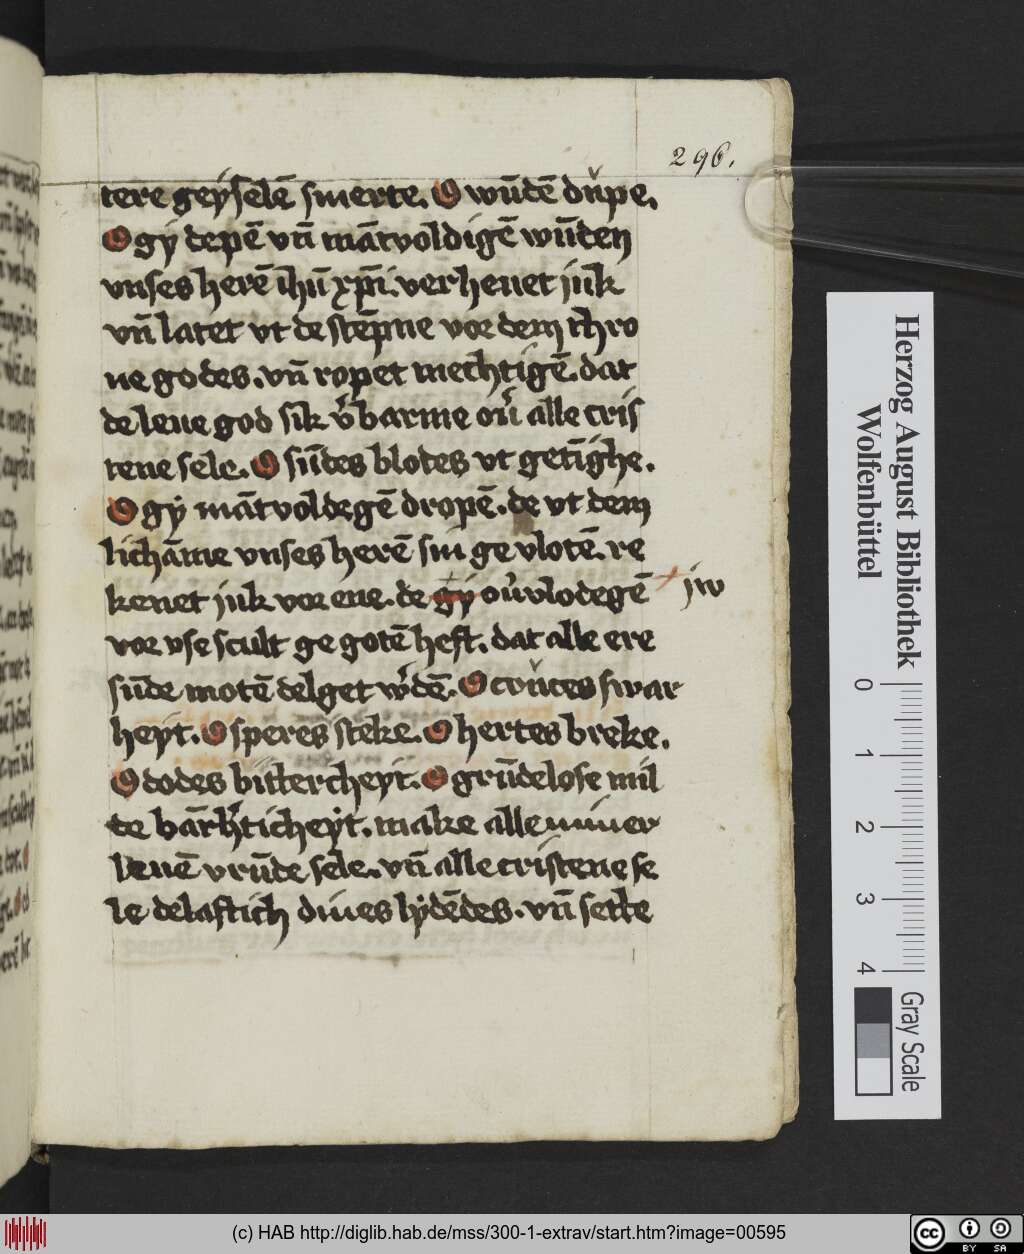 296.
tere geyselē smerte. O wūdē dupe.
O gy depē vn̄ mātvoldigē wūden
vnses herē ihū xp̄i. verheuet juk
vn̄ latet vt de stēpne vor dem thro
ne godes. vn̄ ropet mechtigē. dat
de leue god sik v̓barme ou̓ alle cris
tene sele. O sūdes blodes vt getīghe.
O gy mātvoldegē dropē. de vt dem
lichāme vnses herē sin ge vlotē. re
kenet juk vor ene. de gy ou̓vlodegē jw
vor vse scult ge gotē heft. dat alle ere
sūde motē delget w̓dē. O cruces swar
heyt. O speres steke. O hertes breke.
O dodes bittercheyt. O grūdelose mil
de bārh̓ticheyt. make alle miner
leuē vrūde sele. vn̄ alle cristene se
le delaftich dines lydēdes. vn̄ sette
Herzog August Bibliothek
Wolfenbüttel
0 1 2 3 4
Gray Scale
(c) HAB http://diglib.hab.de/mss/300-1-extrav/start.htm?image=00595
cc BY SA